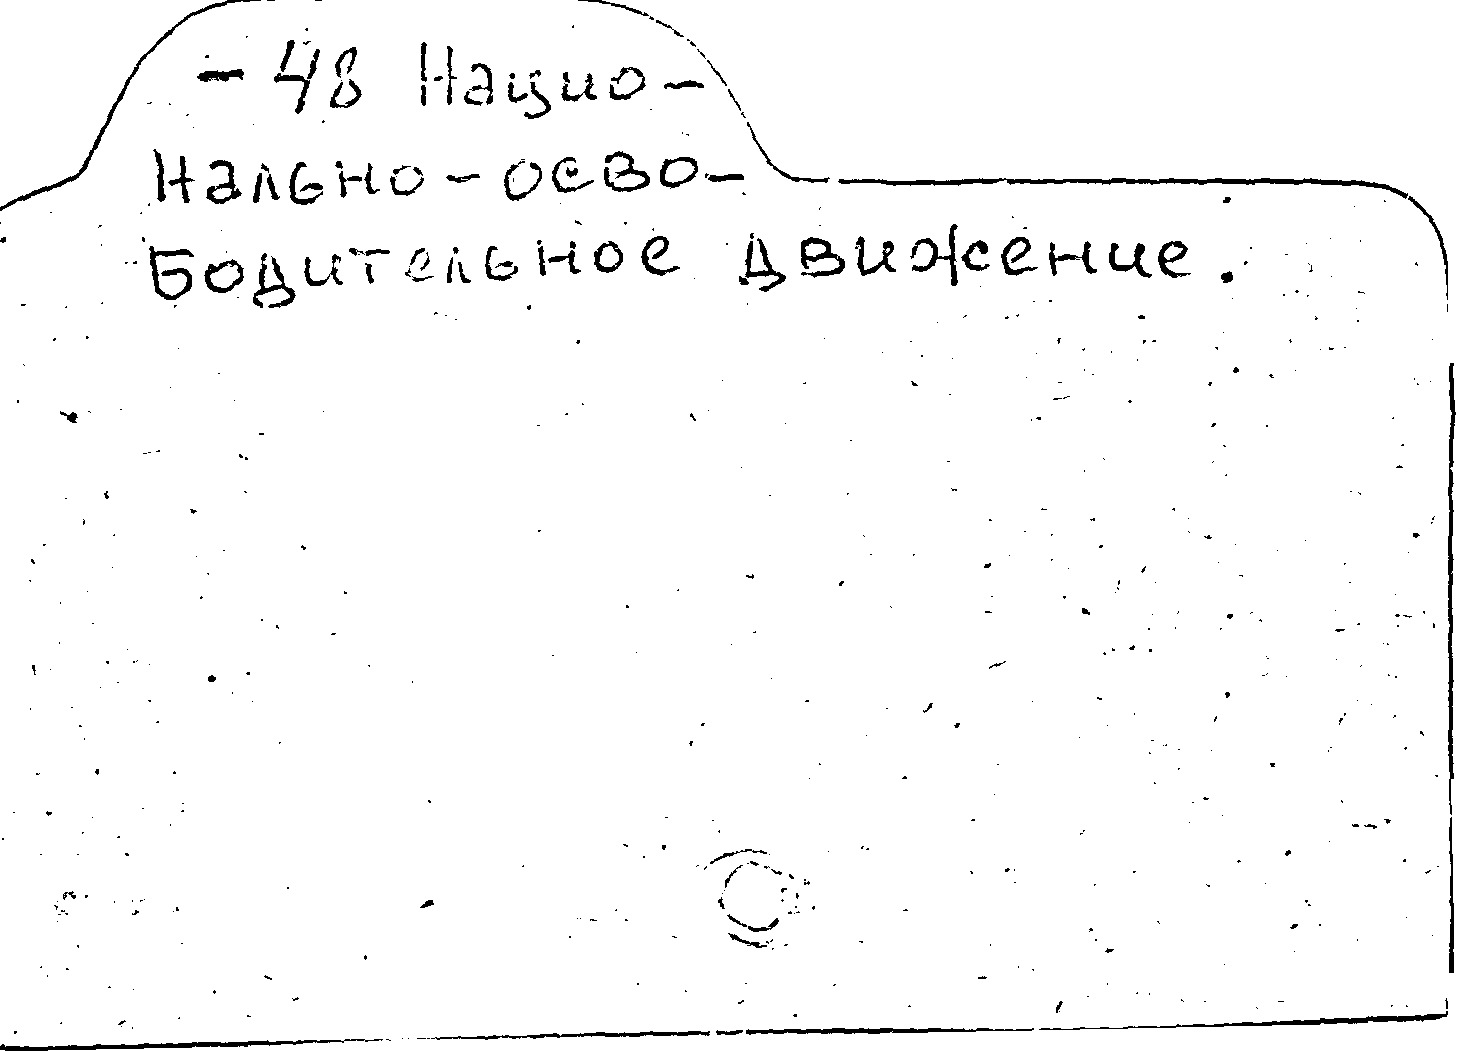 - 48 Нацио-
Нально-осво-
Бодительное движение.